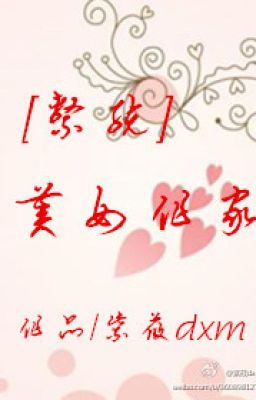 [繫統]
美女作家
作品/紫薇dxm